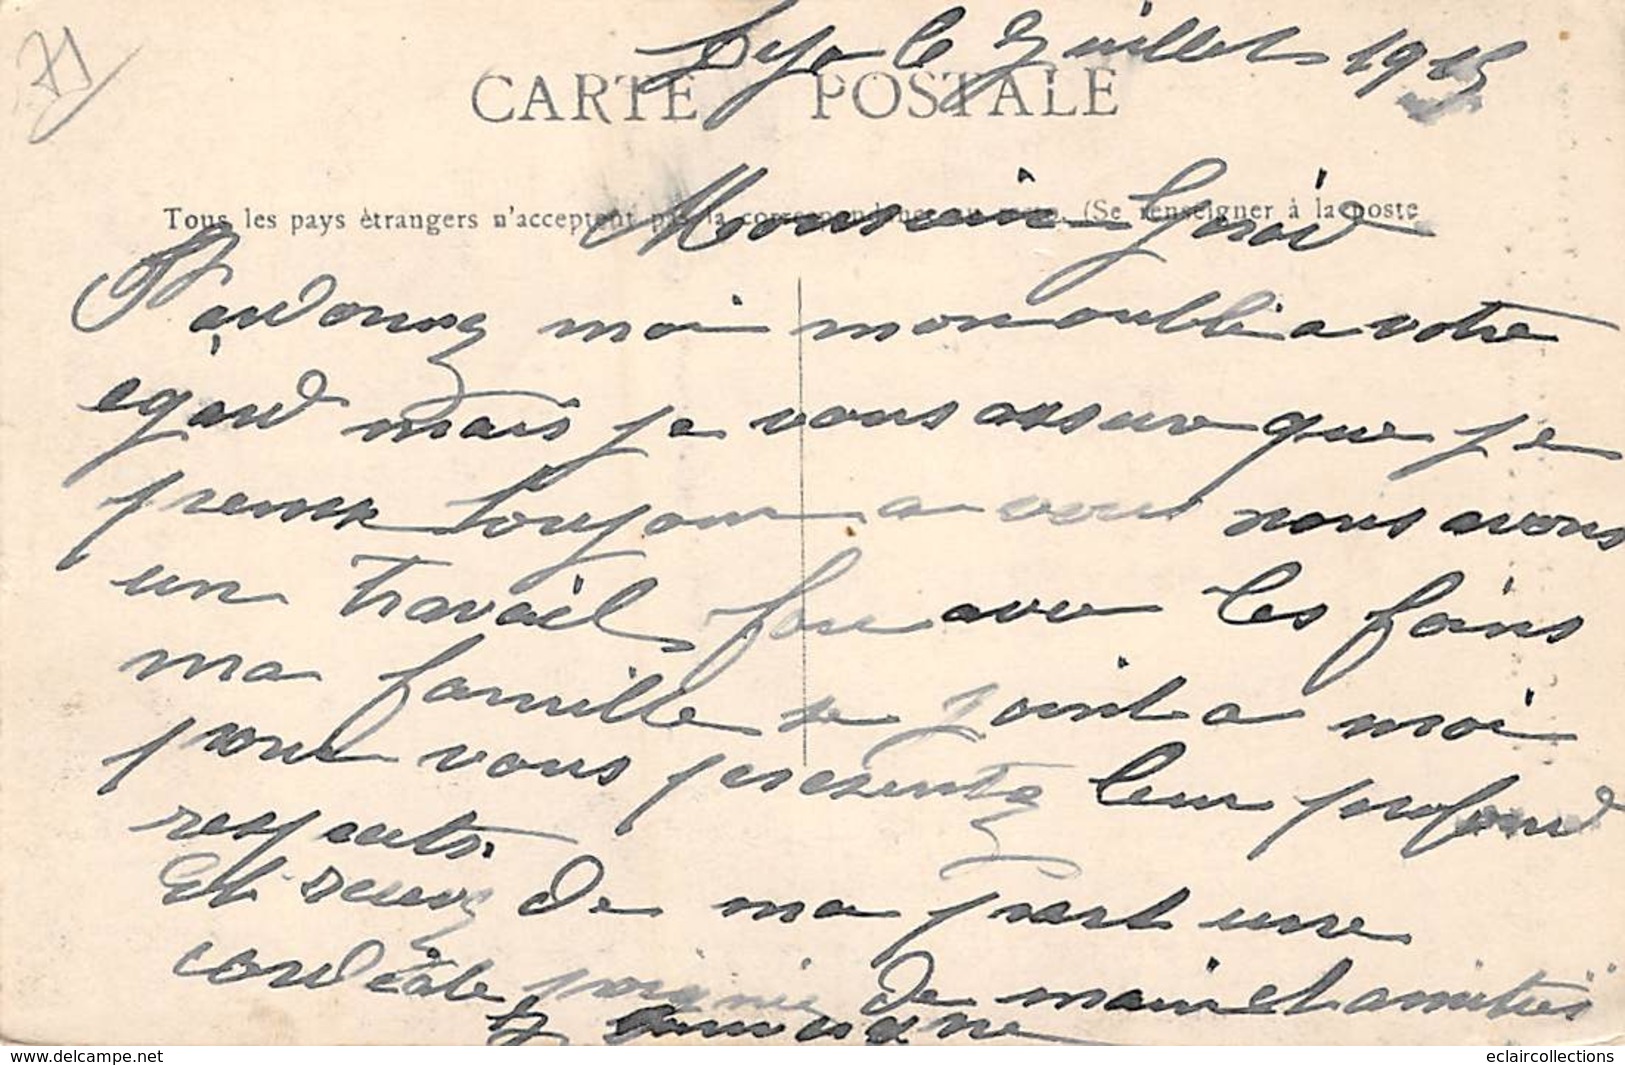 71
le 3 juillet 1915
CARTE POSTALE
Tous les pays étrangers n'acceptent pas la correspondance au recto. (Se renseigner à la poste
Pardonnez moi mon oubli a votre
egard mais je vous assure que je
pense toujour a vous nous avons
un travail fou avec les foins
ma famille se joint a moi
pour vous presentez leur profond
respects.
Et recevez de ma part une
cordiale poignie de main et amitiés
eclaircollections
www.delcampe.net